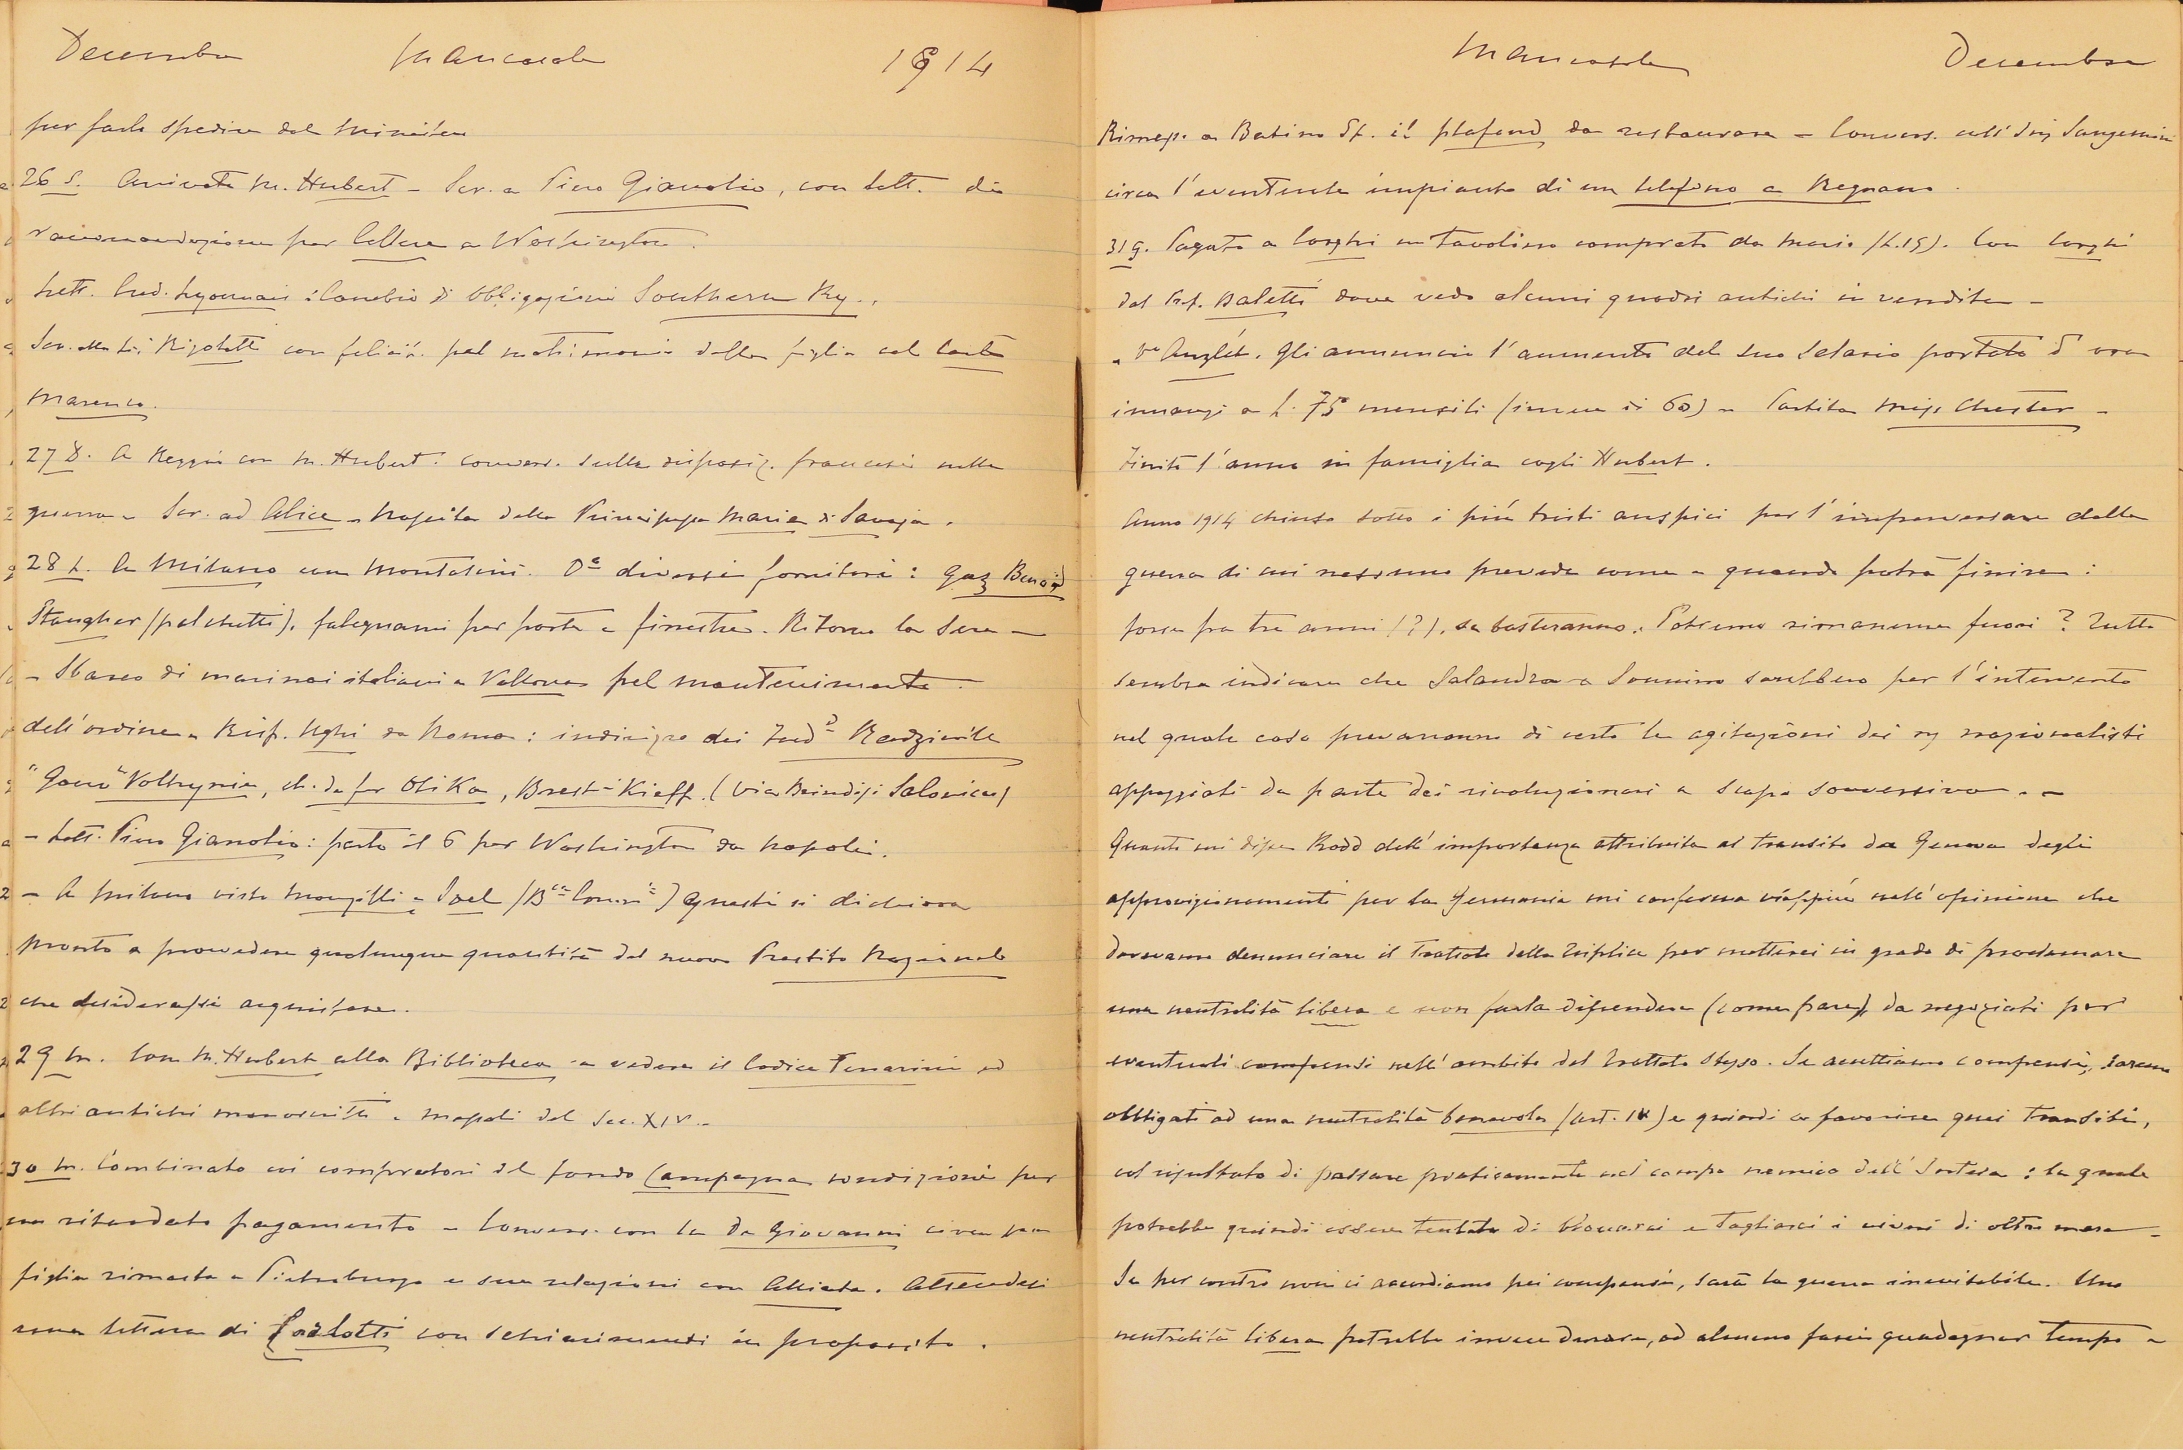 Decembre Mancasale 1914
per farlo spedire dal Ministero
26 S. Arrivata M. Hubert – Scr. a Piero Gianolio, con lett. di
raccomandazione per Cellere a Washington.
Lett. Cred. Lyonnais: Cambio di obbligazioni Southern Ry.
Scr. alla Rigoletti con felicit. pel matrimonio della figlia col Conte
Marenco.
27 D. A Reggio con M. Hubert: convers. sulle disposiz. francesi nella
guerra – Scr. ad Alice – Nascita della Principessa Maria di Savoja.
28 L. A Milano con Montasini. Da diversi fornitori: Gaz
Stangher (palchetti), falegnami per porte e finestre. Ritorno la sera –
– Sbarco di marinai italiani a Vallona pel mantenimento
dell'ordine – Risp. Ughi da Roma: indirizzo dei Radziwill
"Gouvt" Volhynie, ch. de fer Olika, Brest-Kieff. (via Brindisi Salonicco)
– Lett. Piero Gianolio: parte il 6 per Washington da Napoli.
– A Milano visto Mongilli e Joel (Bca Comm.) questi si dichiara
pronto a provvedere qualunque quantità del nuovo Prestito Nazionale
che desiderassi acquistare.
29 M. Con M. Hubert alla Biblioteca a vedere il Codice ed
altri antichi manoscritti e messali del Sec. XIV.–
30 M. Combinato coi compratori del fondo Campagna condizioni per
un ritardato pagamento – Convers. con la De Giovanni circa sua
figlia rimasta a Pietroburgo e sue relazioni con Alliata. Attendesi
una lettera di Carlotti con schiarimenti in proposito.
Mancasale Decembre
Rimess. a Bertino St. il plafond da restaurare – Convers. coll'Ing Sangermini
circa l'eventuale impianto di un telefono a Regnano.
31 g. Pagato a Corghi un tavolino comprato da Mario (L.15). Con Corghi
dal Prof. Baletti dove vedo alcuni quadri antichi in vendita –
" Va Anzlèt. Gli annuncio l'aumento del suo salario portato d'ora
innanzi a L. 75 mensili (invece di 60) – Partita Miss Chester –
Finito l'anno in famiglia cogli Hubert.
Anno 1914 chiuso sotto i più tristi auspici per l'imperversare della
guerra di cui nessuno prevede come e quando potrà finire:
forse fra tre anni (?), se basteranno. Potremo rimanerne fuori? Tutto
sembra indicare che Salandra e Sonnino sarebbero per l'intervento
nel quale caso prevarranno di certo le agitazioni dei nazionalisti
appoggiati da parte dei rivoluzionari a scopo sovversivo. –
Quanto mi disse Rodd dell'importanza attribuita al transito da Genova degli
approvigionamenti per la Germania mi conferma viappiù nell'opinione che
dovevamo denunciare il Trattato della Triplice per metterci in grado di proclamare
una neutralità libera e non farla dipendere (come pare) da negoziati per
eventuali compensi nell'ambito del trattato stesso. Se accettiamo compensi, saremo
obbligati ad una neutralità benevola (art. IV) e quindi a favorire quei transiti,
col risultato di passare praticamente nel campo nemico dell'Intesa: la quale
potrebbe quindi essere tentata di bloccarci e tagliarci i viveri di oltre mare –
Se per contro non ci accordiamo pei compensi, sarà la guerra inevitabile. Una
neutralità libera potrebbe invece durare, od almeno farci guadagnar tempo –